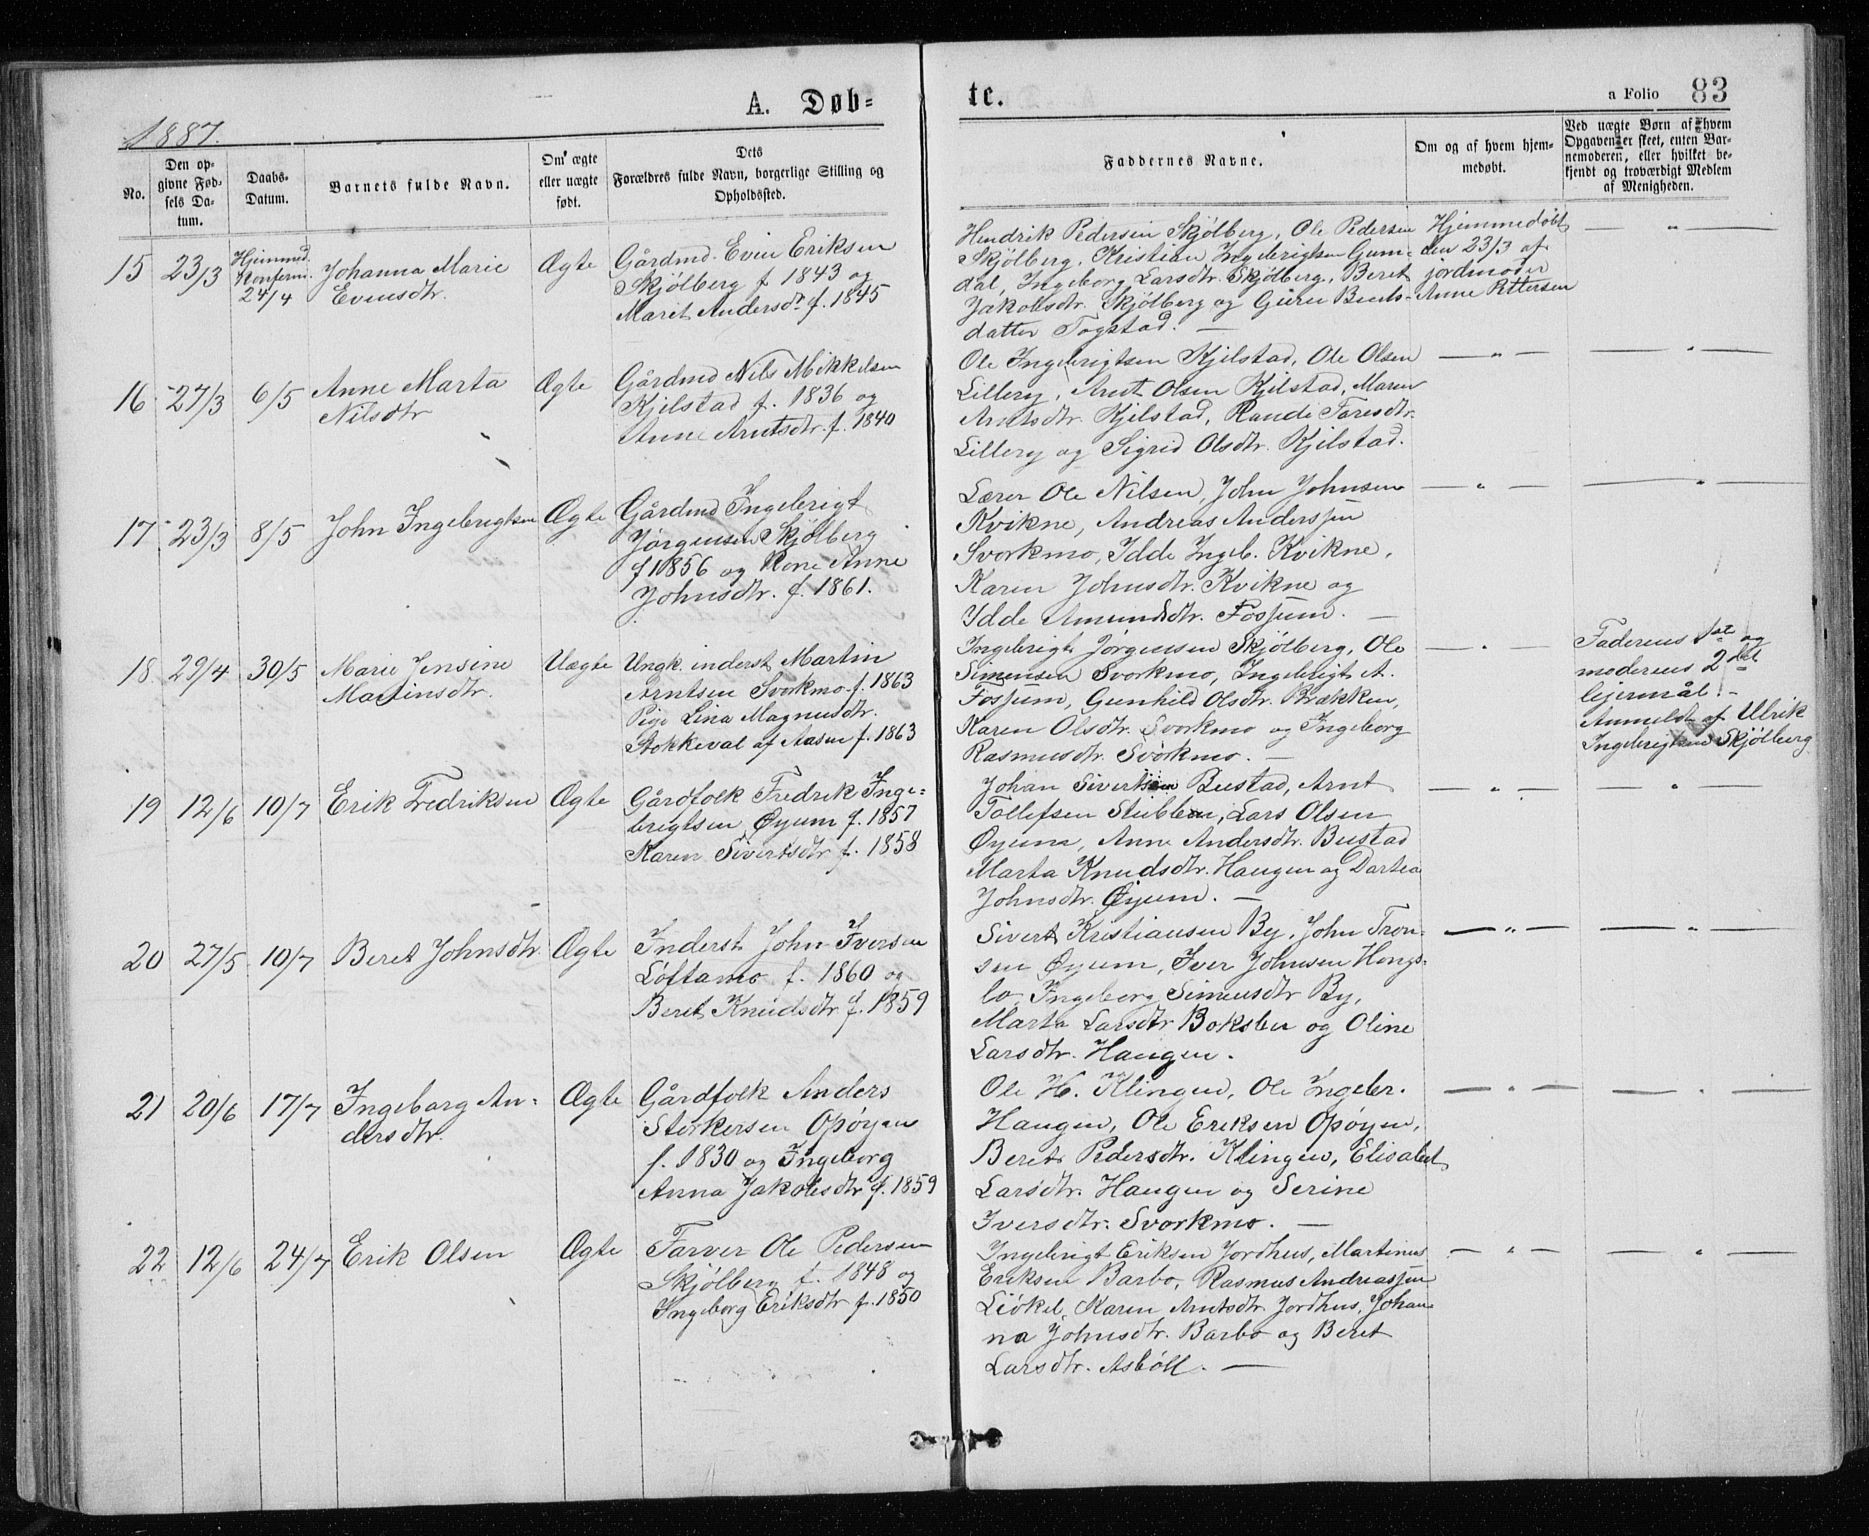 1887.
A. Døb-
te.
a Folio 83
No.
Den op-
givne Fød-
sels Da-
tum.
Daabs-
Datum.
Barnets fulde Navn.
Om ægte
eller uægte
født.
Dets
Forældres fulde Navn, borgerlige Stilling og
Opholdssted.
Faddernes Navne.
Om og af hvem hjem-
medøbt.
Ved uægte Børn af hvem
Opgaven er skeet, enten Bar-
nemoderen, eller hvilket be-
kjendt og troværdigt Medlem
af Menigheden.
15 23/3
Hjemmed.
Konferm.
24/4
Johanna Marie
Evensdtr.
Ægte
Gårdmd. Even Eriksen
Skjølberg f. 1843 og
Marit Andersdtr f. 1845
Hendrik Pedersen Skjølberg, Ole Pedersen
Skjølberg, Kristian Ingebrigtsen Gum-
dal, Ingeborg Larsdtr. Skjølberg, Beret
Jakobsdtr. Skjølberg og Guru Bents-
datter Togstad. —
Hjemmedøbt
den 23/3 af
jordmoder
Anne Pettersen
— " —
16 27/3 6/5
Anne Marta
Nilsdtr
Ægte
Gårdmd Nils Mikkelsen
Kjelstad f. 1836 og
Anne Arntsdtr. f. 1840
Ole Ingebrigtsen Kjelstad, Ole Olsen
Lillery, Arnt Olsen Kjelstad, Maren
Arntsdtr. Kjelstad, Randi Taresdtr.
Lillery og Sigrid Olsdtr. Kjelstad.
— " —
— " —
17 23/3 8/5
John Ingebrigtsen
Ægte
Gårdmd Ingebrigt
Jørgensen Skjølberg
f. 1856 og Kone Anne
Johnsdtr. f. 1861.
Lærer Ole Nilsen, John Johnsen
Kvikne, Andreas Anderssen
Svorkmo, Idde Ingeb. Kvikne,
Karen Johnsdtr. Kvikne og
Idde Amundsdtr. Fossum. —
— " —
— " —
18 29/4 30/5
Marie Jensine
Martinsdtr.
Uægte
Ungk. inderst Martin
Arntsen Svorkmo f. 1863
Pige Lina Magnusdtr.
Stokkeval af Aasen f. 1863
Ingebrigt Jørgensen Skjølberg, Ole
Simensen Svorkmo, Ingebrigt A.
Fossum, Gunhild Olsdtr. Brækken,
Karen Olsdtr. Svorkmo og Ingeborg
Rasmusdtr. Svorkmo. —
— " —
Faderens 1ste og
moderens 2det
lejermål. -
Anmeldt af Ulrik
Ingebrigtsen Skjølberg
19 12/6 10/7
Erik Fredriksen
Ægte
Gårdfolk Fredrik Inge-
brigtsen Øyum f. 1857
Karen Sivertsdtr f. 1858
Johan Sivertsen Bustad, Arnt
Tollefsen Stubben, Lars Olsen
Øyum, Anne Andersdtr. Bustad
Marta Knudsdtr. Haugen og Dartea
Johnsdtr. Øyum. —
— " —
— " —
20 27/5 10/7
Beret Johnsdtr.
Ægte
Inderst John Iversen
Løftamo f. 1860 og
Beret Knudsdtr f. 1859
Sivert Kristiansen By, John Tron-
sen Øyum, Iver Johnsen Hongs-
lo, Ingeborg Simensdtr By,
Marta Larsdtr Bokslen og Oline
Larsdtr. Haugen.
— " —
— " —
21 20/6 17/7
Ingeborg An-
dersdtr.
Ægte
Gårdfolk Anders
Størkersen Opøyen
f. 1830 og Ingeborg
Anna Jakobsdtr f. 1859
Ole H. Klingen, Ole Ingebr.
Haugen, Ole Eriksen Opøyen,
Beret Pedersdtr. Klingen, Elisabet
Larsdtr. Haugen og Serine
Iversdtr. Svorkmo. —
— " —
— " —
22 12/6 24/7
Erik Olsen
Ægte
Farver Ole Pedersen
Skjølberg f. 1848 og
Ingeborg Eriksdtr f. 1850
Ingebrigt Eriksen Jordhus, Martinus
Eriksen Barbo, Rasmus Andreassen
Liøkel, Karen Arntsdtr. Jordhus, Johan-
na Johnsdtr. Barbo og Beret
Larsdtr. Asbøll. —
— " —
— " —